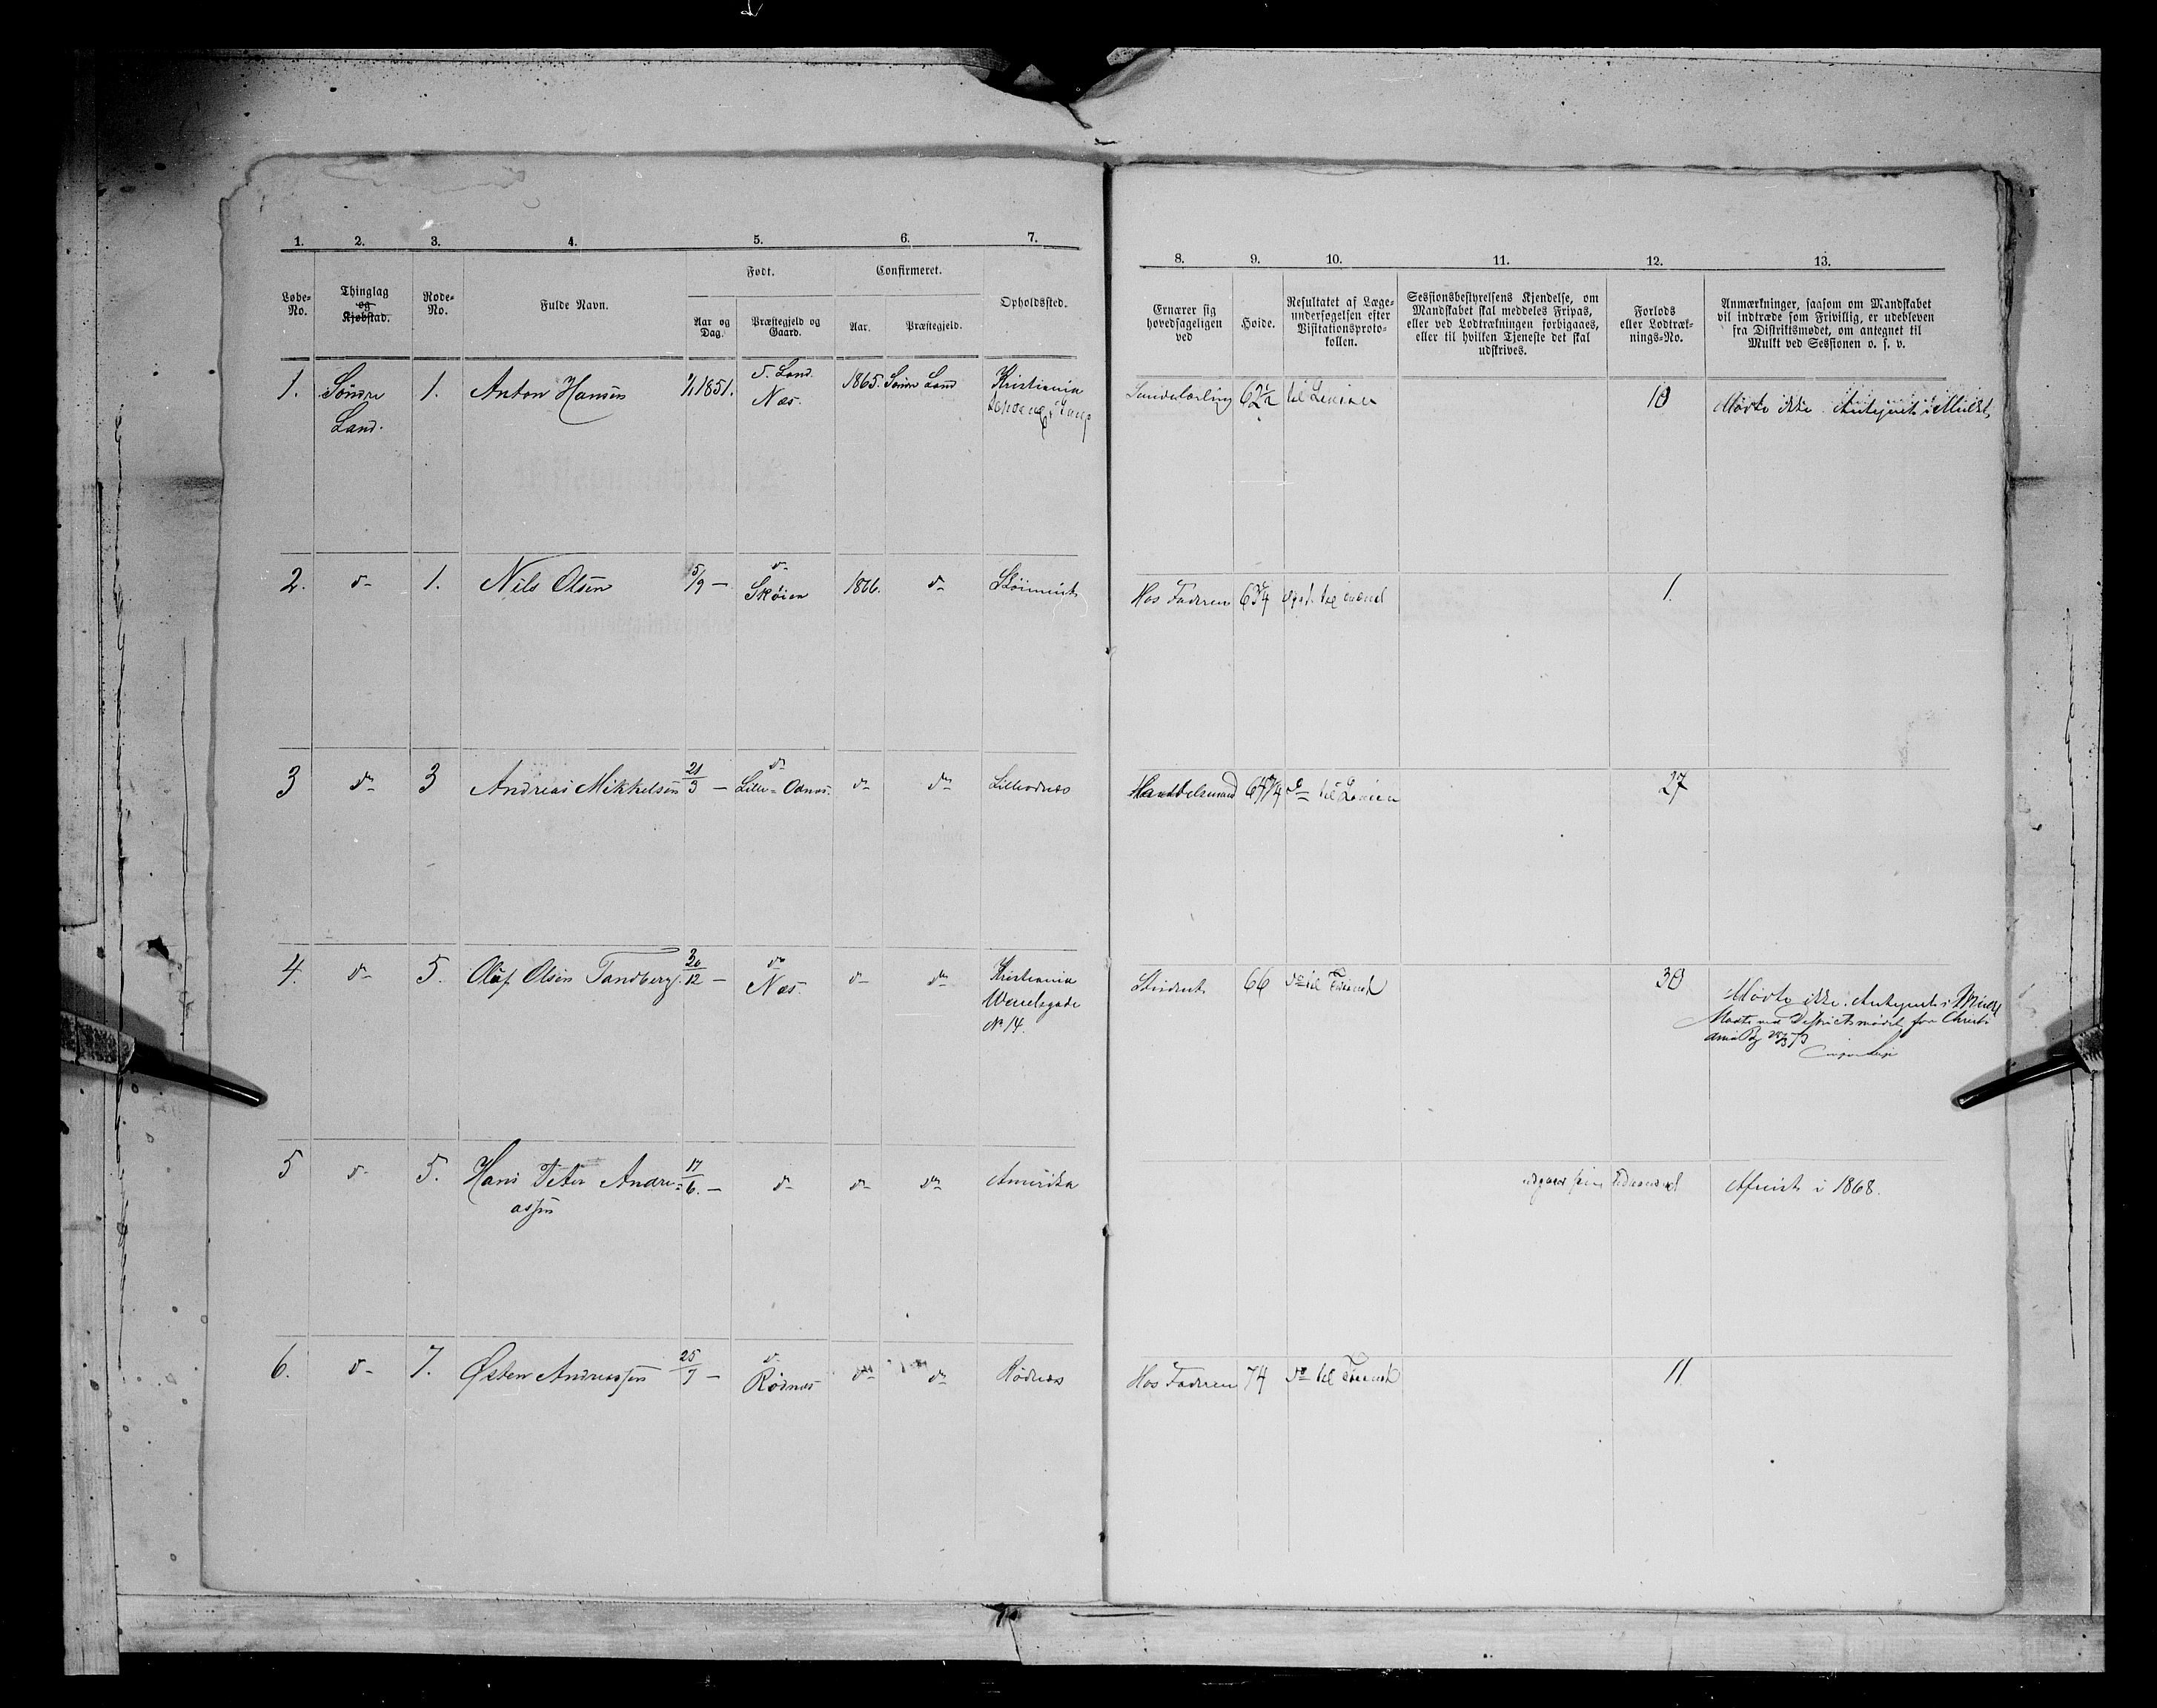 1. 2. 3. 4. 5. 6. 7.
Løbe-No.
Thinglag og Kjøbstad.
Rode-No.
Fulde Navn.
Født.
Aar og Dag.
Præstegjeld og Gaard.
Confirmeret.
Aar.
Præstegjeld.
Opholdssted.
1. Søndre 1. Anton Hansen 1851. S. Land. 1865. Søndre Land Kristiania
Land. Næs.
2. d- 1. Nils Olsen 5/9 - d- 1866. d-
Skøien
3 dn 3 Andreas Mikkelsen 21/3 - dn dn dn Lilleodnes
Lille-Odnes.
4. d- 5. Oluf Olsen Tandberg. 30/12 - dn d- dn Kristiania
Næs.
No 14.
5 d- 5. Hans Peter Andre= 17/6. - d- dn dn Amerika
assen
6. d- 7. Østen Andreassen 25/7 - d- dn dn Rødnes
Rødnes
8. 9. 10. 11. 12. 13.
Ernærer sig
hovedsageligen
ved
Høide.
Resultatet af Læge-
undersøgelsen efter
Visitationsproto-
kollen.
Sessionsbestyrelsens Kjendelse, om
Mandskabet skal meddeles Fripas,
eller ved Lodtrækningen forbigaaes,
eller til hvilken Tjeneste det skal
udskrives.
Forlods
eller Lodtræk-
nings-No.
Anmærkninger, saasom om Mandskabet
vil indtræde som Frivillig, er udebleven
fra Distriktsmødet, om antegnet til
Mulkt ved Sessionen o. s. v.
62½ til 10 Mødte ikke. Antegnet i Mulkt
Hos Faderen 63¼ til 1.
Handelsmand dn til 27
Student 66 dn til 30 Mødte ikke. Antegnet i Mulkt
Mødte ved Districtsmødet for Christi
ania By
Afreist i 1868.
Hos Faderen 74 dn til 11